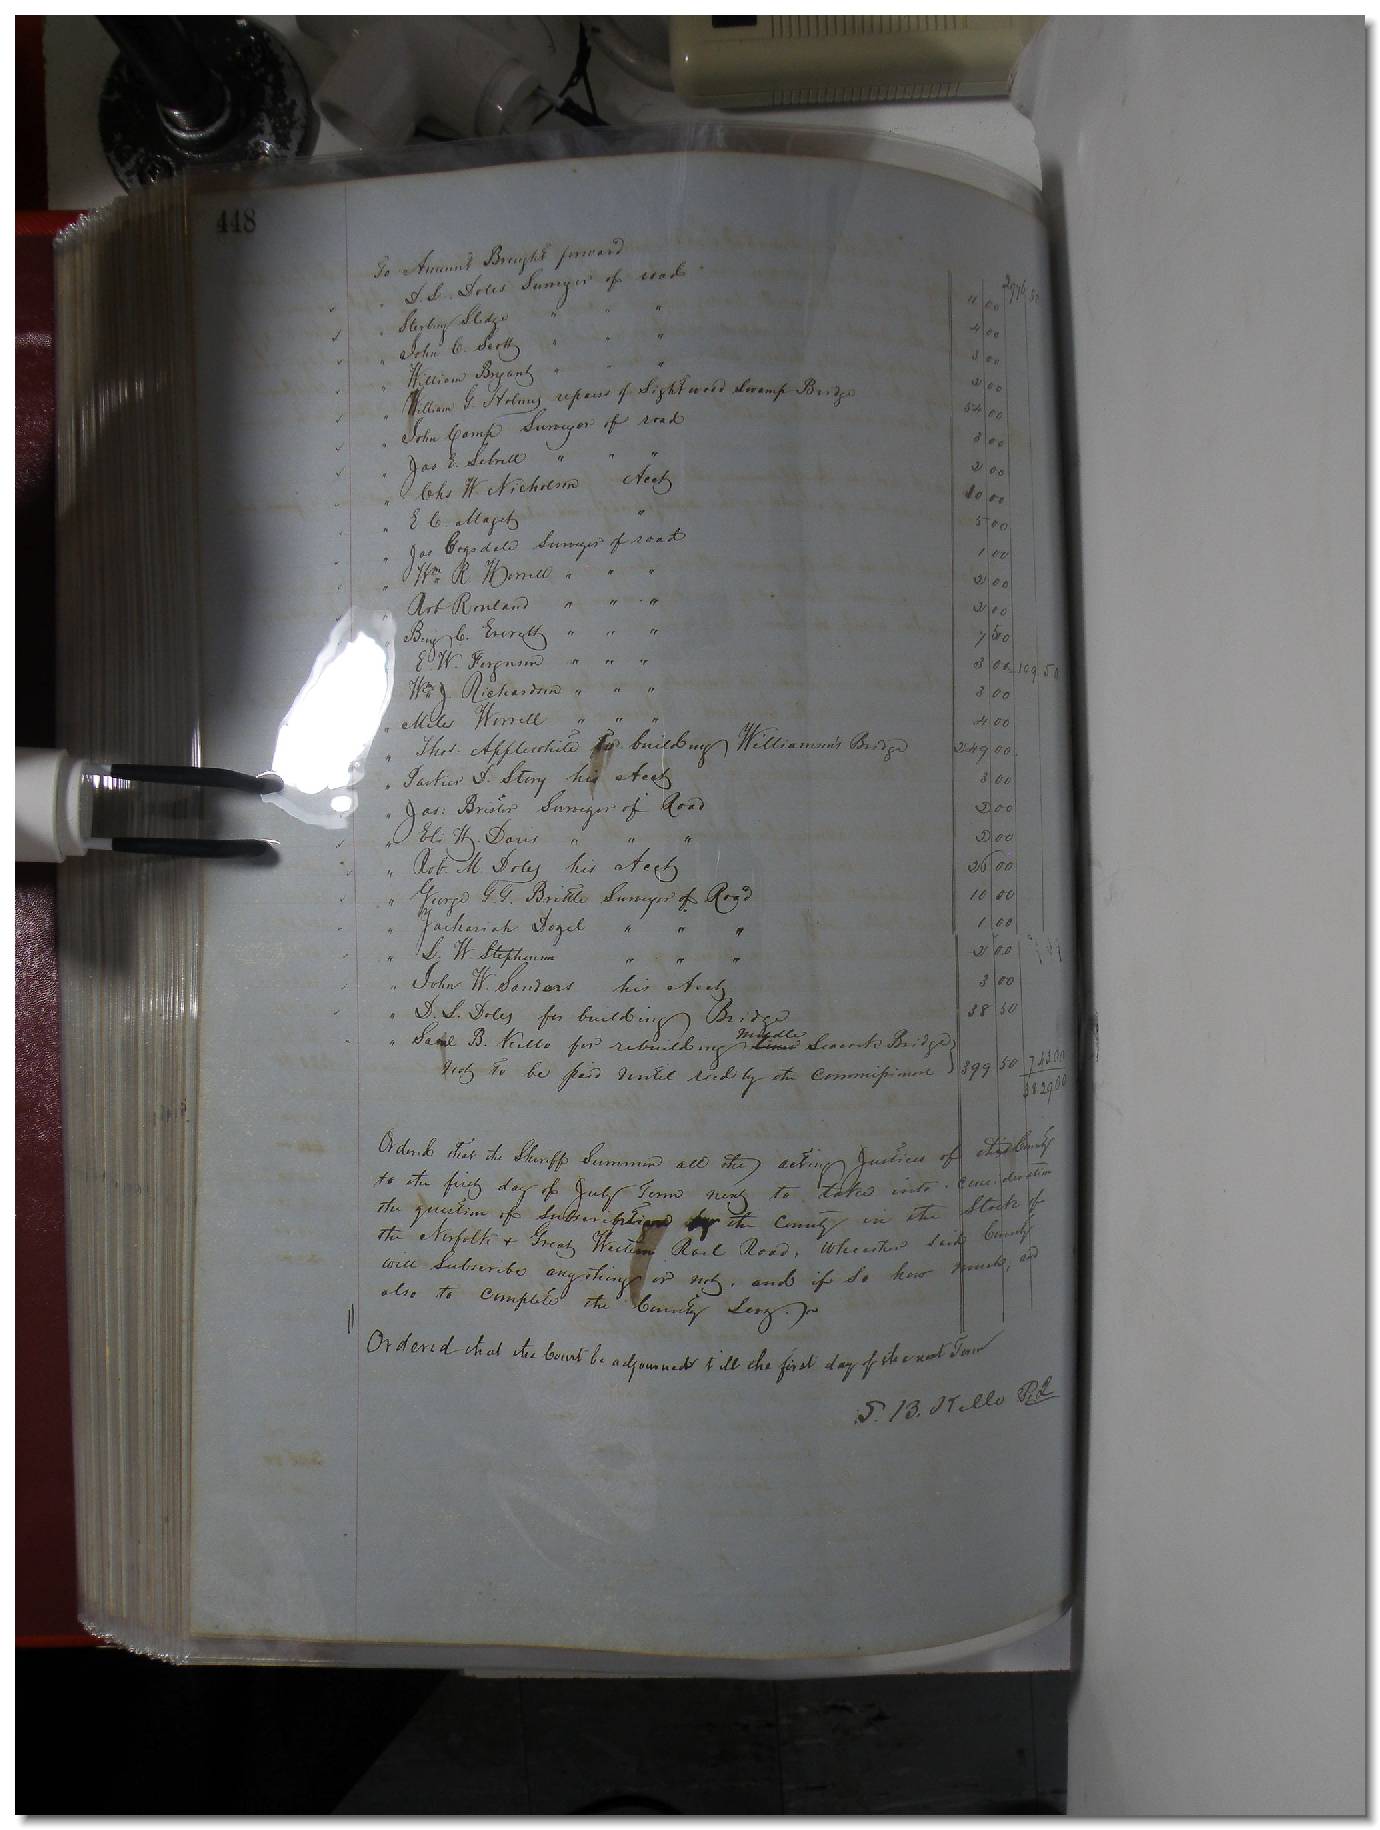 448
To Amount Brought forward 2976 50
" D. L. Doles Surveyor of road 11 00
" Sterling Sledge " " " 4 00
" John C. Scott " " " 3 00
" William Bryant " " " 2 00
" William G. Holmes repairs of Lightwood Swamp Bridge 54 00
" John Camp Surveyor of road 3 00
" Jas E. Sebrell " " " 2 00
" Chs W. Nicholson Acct 10 00
" E C. Maget " 5 00
" Jas Surveyor of road 1 00
" Wm R Worrell " " " 2 00
" Rob Rowland " " " 2 00
" Benj C. Everett " " " 7 50
" E. W. Ferguson " " " 3 00 109 50
" Wm J Richardson " " " 3 00
" Miles Worrell " " " 4 00
" Thos. Applewhite for building Williamson's Bridge 249 00
" Parker D. Story his Acct 3 00
" Jas: Brister Surveyor of Road 2 00
" Eli W. Davis " " " 2 00
" Rob. M Doles his Acct 26 00
" George G. G. Brittle Surveyor of Road 10 00
" Zachariah " " " 1 00
" L. W Stephenson " " " 2 00
" John W. Sanders his Acct 3 00
" D. L. Doles for building Bridge 38 50
" Saml B. Kello for rebuilding middle Seacock Bridge
not to be paid until recd by the Commissioner 399 50 743.00
3829.00
Orderd that the Sheriff Summon all the acting Justices of this County
to the first day of July Term next to take into consideration
the question of Subscription by the County in the Stock of
the Norfolk & Great Western Rail Road, Wheather said County
will Subscribe anything or not, and if So how much, and
also to complete the County Levy.
Ordered that the Court be adjourned till the first day of the next Term
S. B. Kello